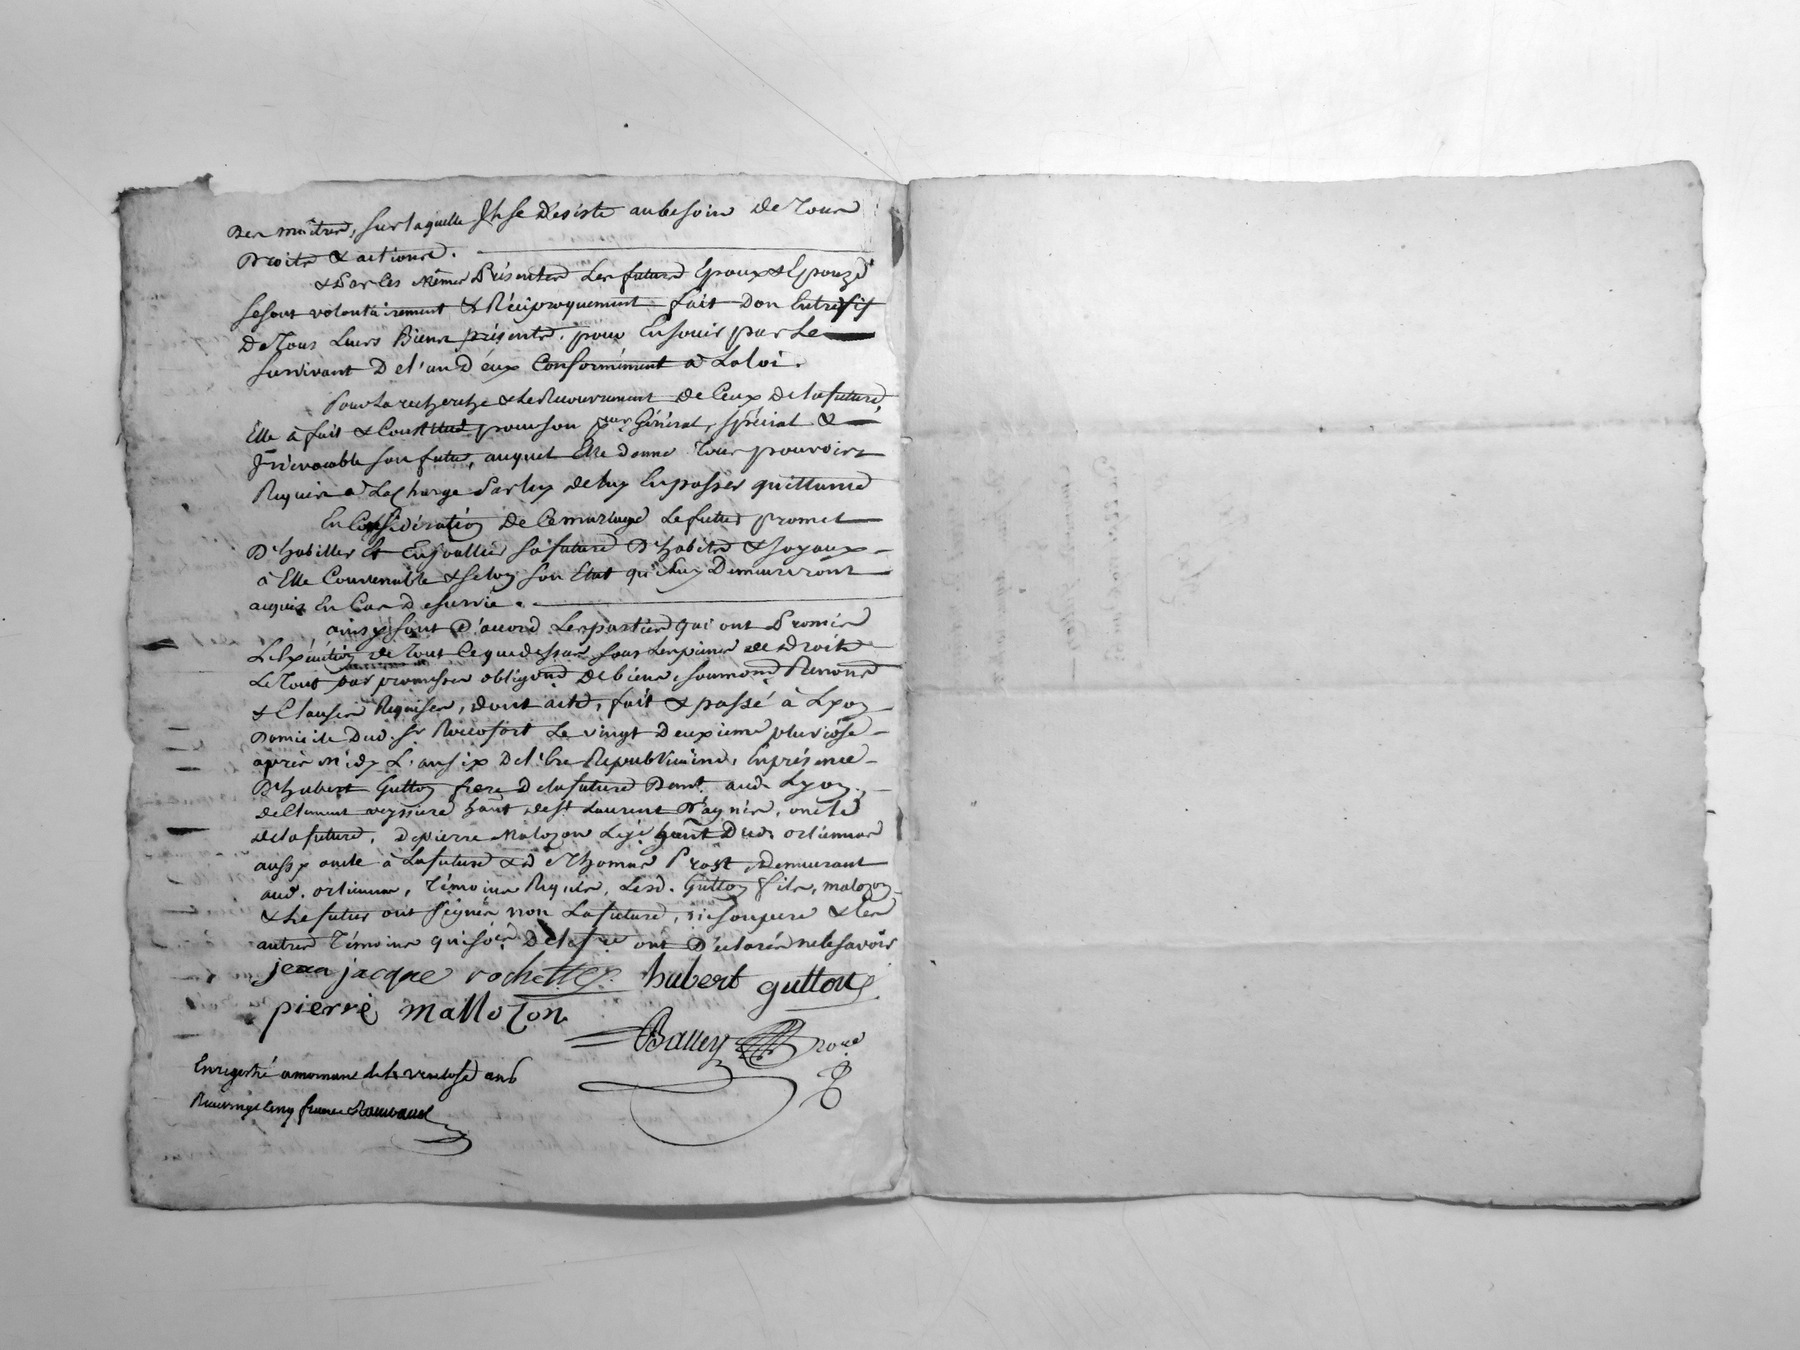 Des maitres, sur laquelle Il se Desiste au besoin de Tous
Droits & actions.
& Par les Mêmes Présentes Les futurs Epoux & Epouze
se sont volontairement & Réciproquement fait Don Entrevif
De Tous Leurs Biens présents, pour En Jouir par Le
survivant De l'un D'éux Conformément a La loi.
Pour La recherche & Le Recouvrement de Ceux De la future,
Elle à fait & Constitué pour son pur Général, spécial &
Irrévocable son futur, auquel Elle donne Tous pouvoirs
Requis a La Charge Par luy de luy En passer quittance
En Considération De Ce mariage Le futur promet
D'habiller Et Enjoailler sa future D'habits & Joyaux
à Elle Convenable & selon son Etat qui Luy Demeureront
acquis En Cas De survie.
ainsy sont D'accord Les parties qui ont Promis
L'Exécution de Tout Ce que dessus sous Les peines de Droit
Le Tout par promesses obligons De biens, soumons Renons
& Clauses Requises, dont acte, fait & passé à Lyon
Domicile Dud. Sr Rocofort Le vingt Deuxieme pluviôse
après midy L'an six De l'Ere Républicaine, En présence
D'hubert Gutton frere De la future Dant. aud. Lyon,
de Clement veyssiere hant de St Laurent D'agnis, oncle
de la future, De pierre Malozon Legé hant Dud. orlienas
aussy oncle à La future & De Thomas Prost, Demeurant
aud. orlienas, Témoins Requis, Lesd. Gutton fils, malozon
& Le futur ont signés non La future, ni son pere & les
autres Témoins qui De ce ont Déclarés ne le savoir
jean jacque rochette hubert gutton
pierre mallozon
Balley
Enregistré a mornant le ventose an 6
Reçu cinq francs